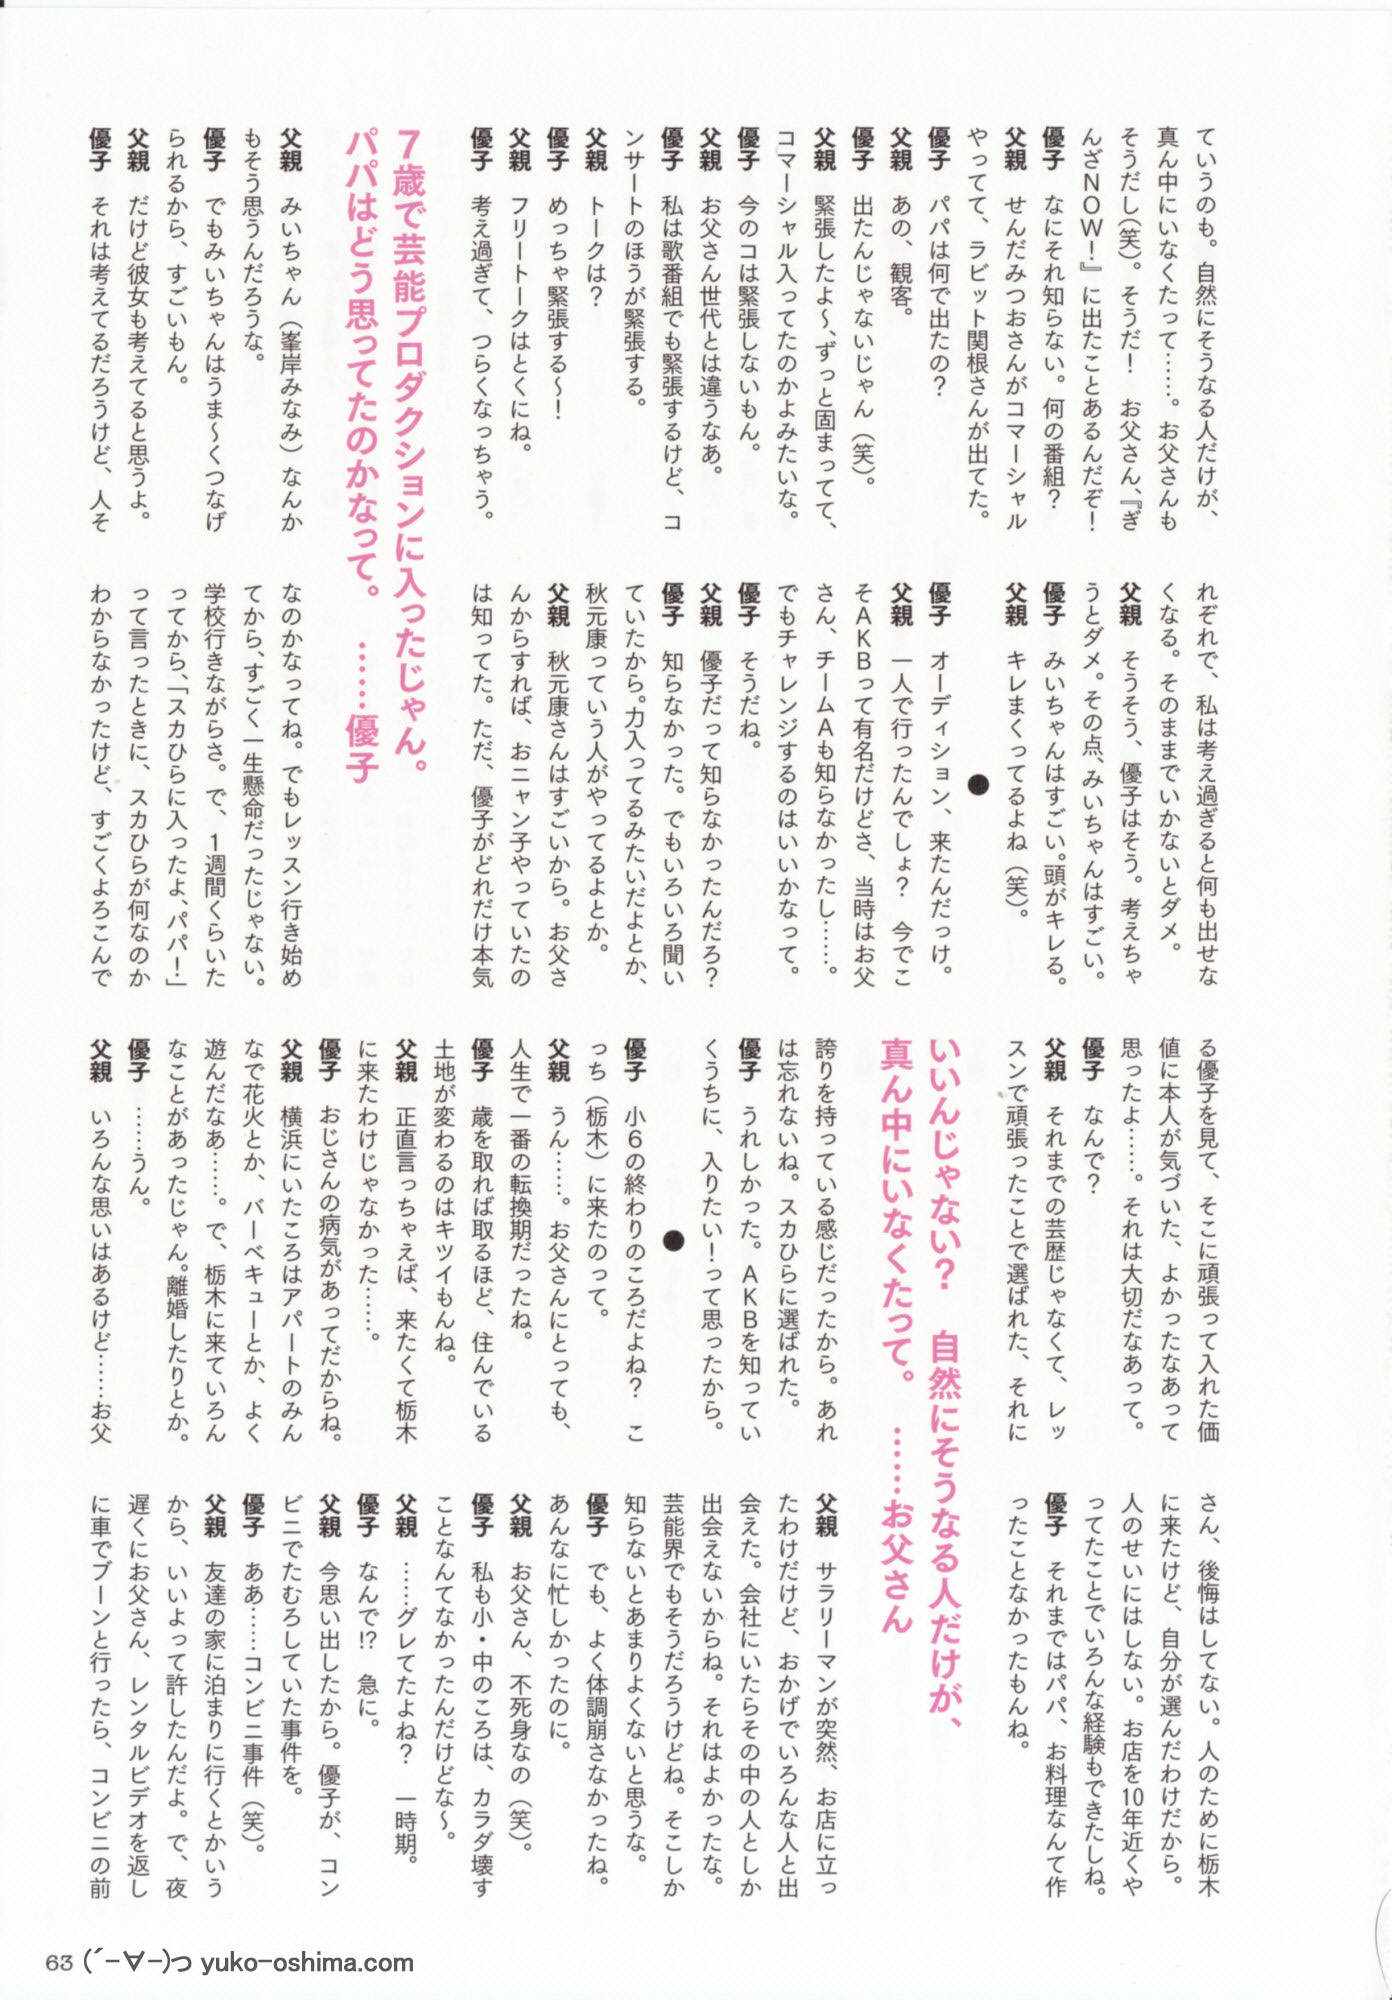 ていうのも。自然にそうなる人だけが、
真ん中にいなくたって……。お父さんも
そうだし(笑)。そうだ!　お父さん、『ぎ
んざNOW!』に出たことあるんだぞ!
優子　なにそれ知らない。何の番組?
父親　せんだみつおさんがコマーシャル
やってて、ラビット関根さんが出てた。
優子　パパは何で出たの?
父親　あの、観客。
優子　出たんじゃないじゃん(笑)。
父親　緊張したよ〜、ずっと固まってて、
コマーシャル入ってたのかよみたいな。
優子　今のコは緊張しないもん。
父親　お父さん世代とは違うなあ。
優子　私は歌番組でも緊張するけど、コ
ンサートのほうが緊張する。
父親　トークは?
優子　めっちゃ緊張する〜!
父親　フリートークはとくにね。
優子　考え過ぎて、つらくなっちゃう。
7歳で芸能プロダクションに入ったじゃん。
パパはどう思ってたのかなって。　……優子
父親　みいちゃん(峯岸みなみ)なんか
もそう思うんだろうな。
優子　でもみいちゃんはうま〜くつなげ
られるから、すごいもん。
父親　だけど彼女も考えてると思うよ。
優子　それは考えてるだろうけど、人そ
れぞれで、私は考え過ぎると何も出せな
くなる。そのままでいかないとダメ。
父親　そうそう、優子はそう。考えちゃ
うとダメ。その点、みいちゃんはすごい。
優子　みいちゃんはすごい。頭がキレる。
父親　キレまくってるよね(笑)。
●
優子　オーディション、来たんだっけ。
父親　一人で行ったんでしょ?　今でこ
そAKBって有名だけどさ、当時はお父
さん、チームAも知らなかったし……。
でもチャレンジするのはいいかなって。
優子　そうだね。
父親　優子だって知らなかったんだろ?
優子　知らなかった。でもいろいろ聞い
ていたから。力入ってるみたいだよとか、
秋元康っていう人がやってるよとか。
父親　秋元康さんはすごいから。お父さ
んからすれば、おニャン子やっていたの
は知ってた。ただ、優子がどれだけ本気
なのかなってね。でもレッスン行き始め
てから、すごく一生懸命だったじゃない。
学校行きながらさ。で、1週間くらいた
ってから、「スカひらに入ったよ、パパ!」
って言ったときに、スカひらが何なのか
わからなかったけど、すごくよろこんで
る優子を見て、そこに頑張って入れた価
値に本人が気づいた、よかったなあって
思ったよ……。それは大切だなあって。
優子　なんで?
父親　それまでの芸歴じゃなくて、レッ
スンで頑張ったことで選ばれた、それに
いいんじゃない?　自然にそうなる人だけが、
真ん中にいなくたって。　……お父さん
誇りを持っている感じだったから。あれ
は忘れないね。スカひらに選ばれた。
優子　うれしかった。AKBを知ってい
くうちに、入りたい!って思ったから。
●
優子　小6の終わりのころだよね?　こ
っち(栃木)に来たのって。
父親　うん……。お父さんにとっても、
人生で一番の転換期だったね。
優子　歳を取れば取るほど、住んでいる
土地が変わるのはキツイもんね。
父親　正直言っちゃえば、来たくて栃木
に来たわけじゃなかった……。
優子　おじさんの病気があってだからね。
父親　横浜にいたころはアパートのみん
なで花火とか、バーベキューとか、よく
遊んだなあ……。で、栃木に来ていろん
なことがあったじゃん。離婚したりとか。
優子　……うん。
父親　いろんな思いはあるけど……お父
さん、後悔はしてない。人のために栃木
に来たけど、自分が選んだわけだから。
人のせいにはしない。お店を10年近くや
ってたことでいろんな経験もできたしね。
優子　それまではパパ、お料理なんて作
ったことなかったもんね。
父親　サラリーマンが突然、お店に立っ
たわけだけど、おかげでいろんな人と出
会えた。会社にいたらその中の人としか
出会えないからね。それはよかったな。
芸能界でもそうだろうけどね。そこしか
知らないとあまりよくないと思うな。
優子　でも、よく体調崩さなかったね。
あんなに忙しかったのに。
父親　お父さん、不死身なの(笑)。
優子　私も小・中のころは、カラダ壊す
ことなんてなかったんだけどな〜。
父親　……グレてたよね?　一時期。
優子　なんで!?　急に。
父親　今思い出したから。優子が、コン
ビニでたむろしていた事件を。
優子　ああ……コンビニ事件(笑)。
父親　友達の家に泊まりに行くとかいう
から、いいよって許したんだよ。で、夜
遅くにお父さん、レンタルビデオを返し
に車でブーンと行ったら、コンビニの前
63 (´-∀-)っ yuko-oshima.com